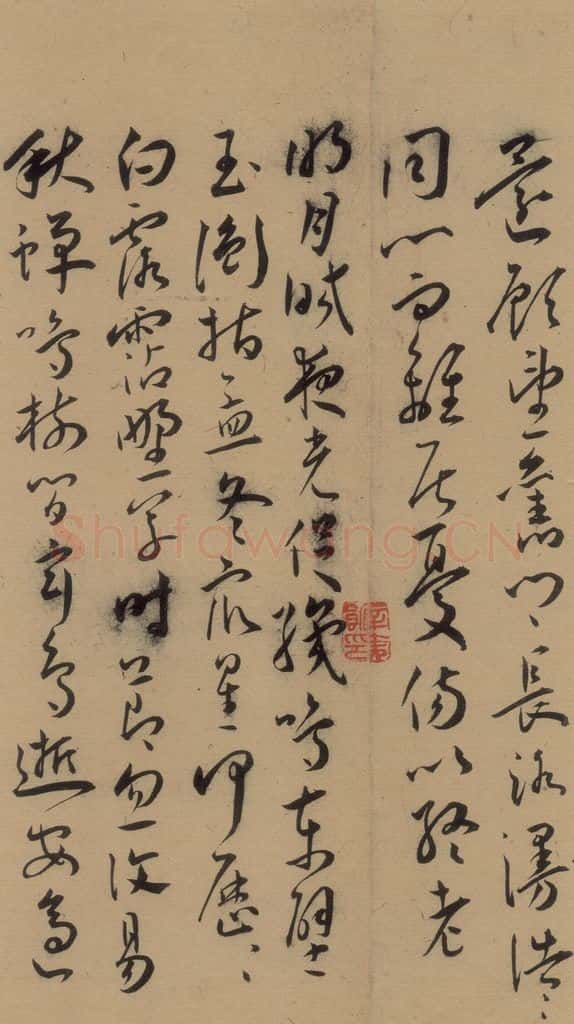 還顧望舊鄉長路漫浩〻
同心而離居憂傷以終老
明月皎夜光促織鳴東壁
玉衡指孟冬眾星何歷〻
白露霑野草時節忽復易
秋蟬鳴樹間玄鳥逝安適
Shufawang.CN